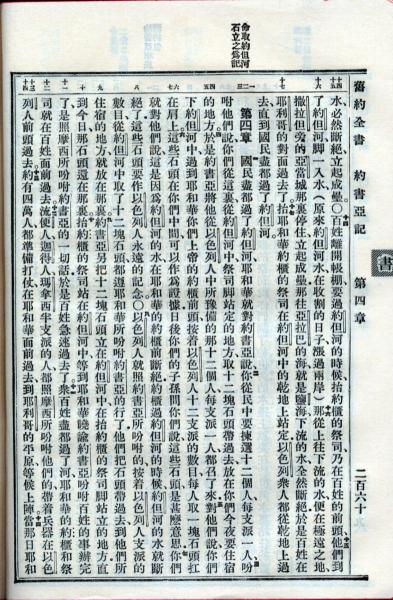 書
舊約全書 約書亞記 第四章 二百六十
命取約但河
石立之爲記
水必然斷絕立起成壘○百姓離開帳棚要過約但河的時候抬約櫃的祭司乃在百姓的前頭他們到
了約但河脚一入水(原來約但河水在收割的日子漲過兩岸)那從上往下流的水便在極遠之地
撒拉但旁的亞當城那裏停住立起成壘那往亞拉巴的海就是鹽海下流的水全然斷絕於是百姓在
耶利哥的對面過去了抬耶和華約櫃的祭司在約但河中的乾地上站定以色列衆人都從乾地上過
去直到國民盡都過了約但河
第四章 國民盡都過了約但河耶和華就對約書亞說你從民中要揀選十二個人每支派一人吩
咐他們說你們從這裏從約但河中祭司脚站定的地方取十二塊石頭帶過去放在你們今夜要住宿
的地方於是約書亞將他從以色列人中所豫備的那十二個人每支派一人都召了來對他們說你們
下約但河中過到耶和華你們上帝的約櫃前頭按着以色列人十二支派的數目每人取一塊石頭扛
在肩上這些石頭在你們中間可以作爲證據日後你們的子孫問你們說這些石頭是甚麽意思你們
就對他們說這是因爲約但河的水在耶和華的約櫃前斷絕約櫃過約但河的時候約但河的水就斷
絕了這些石頭要作以色列人永遠的記念○以色列人就照約書亞所吩咐的按着以色列人支派的
數目從約但河中取了十二塊石頭都遵耶和華所吩咐約書亞的行了他們把石頭帶過去到他們所
住宿的地方就放在那裏約書亞另把十二塊石頭立在約但河中在抬約櫃的祭司脚站立的地方直
到今日那石頭還在那裏抬約櫃的祭司站在約但河中等到耶和華曉諭約書亞吩咐百姓的事辦完
了是照摩西所吩咐約書亞的一切話於是百姓急速過去了衆百姓盡都過了河耶和華的約櫃和祭
司就在百姓面前過去流便人迦得人瑪拿西半支派的人都照摩西所吩咐他們的帶着兵器在以色
列人前頭過去約有四萬人都準備打仗在耶和華面前過去到耶利哥的平原等候上陣當那日耶和